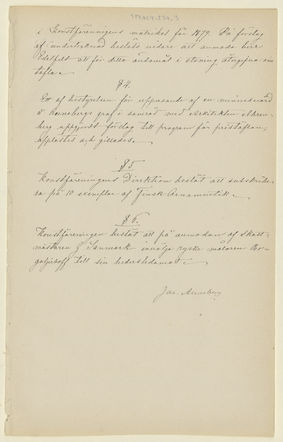 i Konstföreningens matrikel för 1879. På förslag
af undertecknad beslöts vidare att anmoda herr
Edelfelt att för detta ändamål i etsning utföra sin
tafla
§ 4.
Ett af bestyrelsen för uppsättande af en minnesvård
å grafv i samråd med Arkitekten
uppgjordt förslag till program för pristäflan,
upplästes och gillades.
§ 5.
Konstföreningens Direktion beslöt att subskribe-
ra på 10 exemplar af Finsk Ornamentik.
§ 6.
Konstföreningen beslöt att på anmodan af Skatt-
mästaren Sinnmark invälja ryske målaren
till sin hedersledamot.
Jac. Ahrenberg